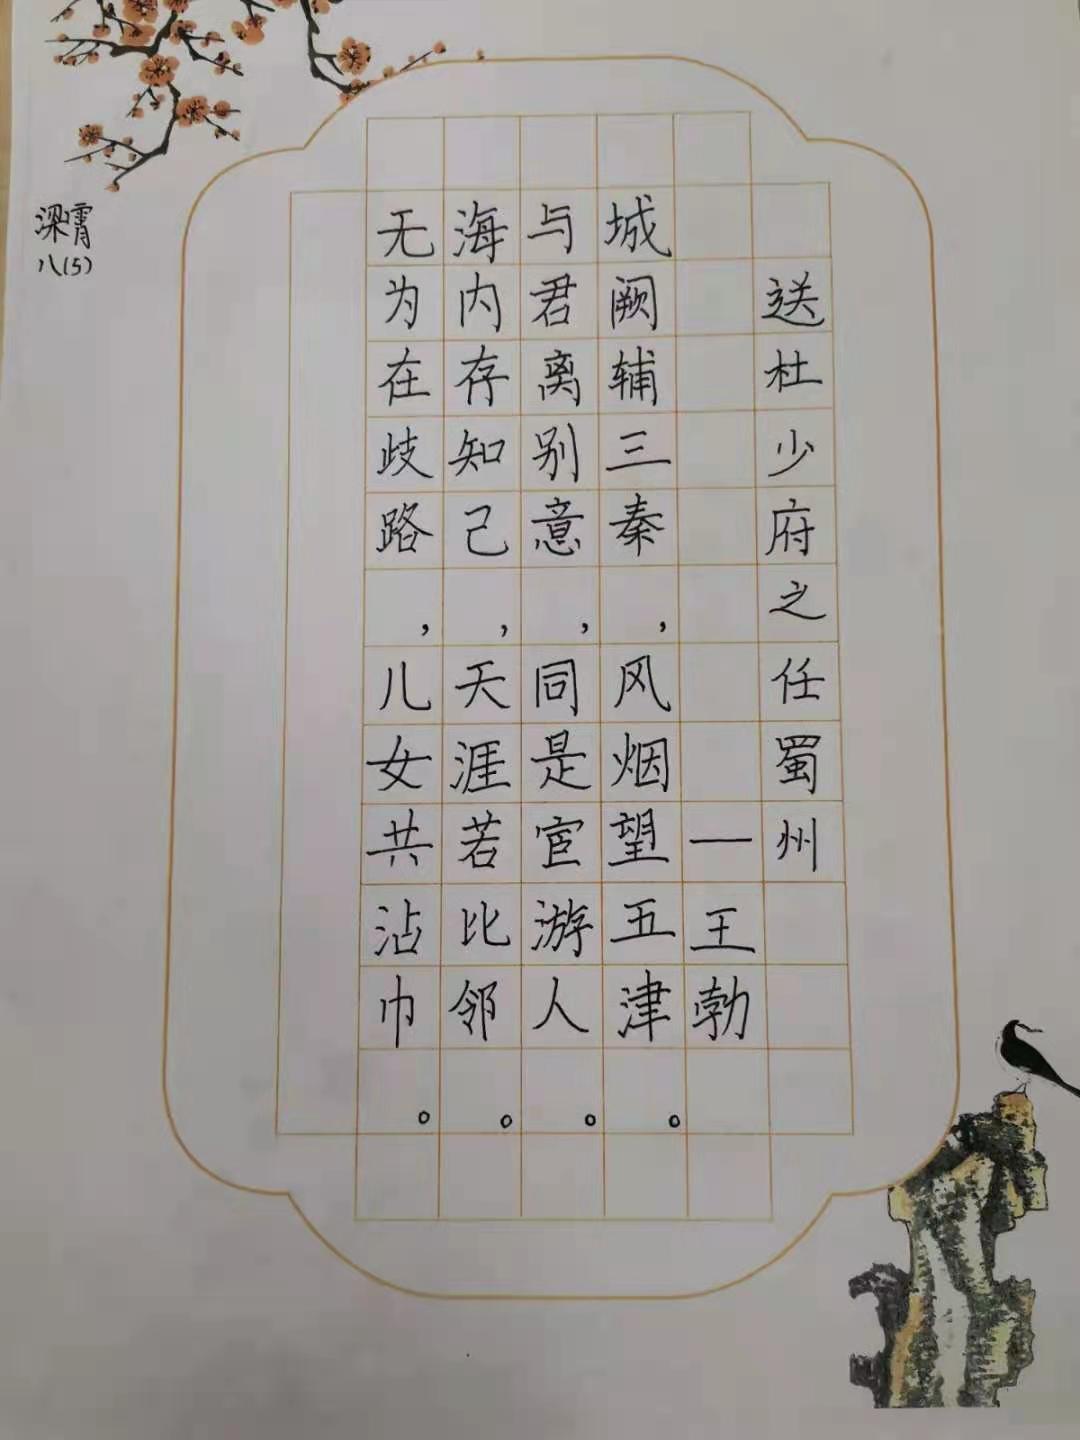 送杜少府之任蜀州
—王勃
城阙辅三秦，风烟望五津。
与君离别意，同是宦游人。
海内存知己，天涯若比邻。
无为在歧路，儿女共沾巾。
梁霄
八(5)